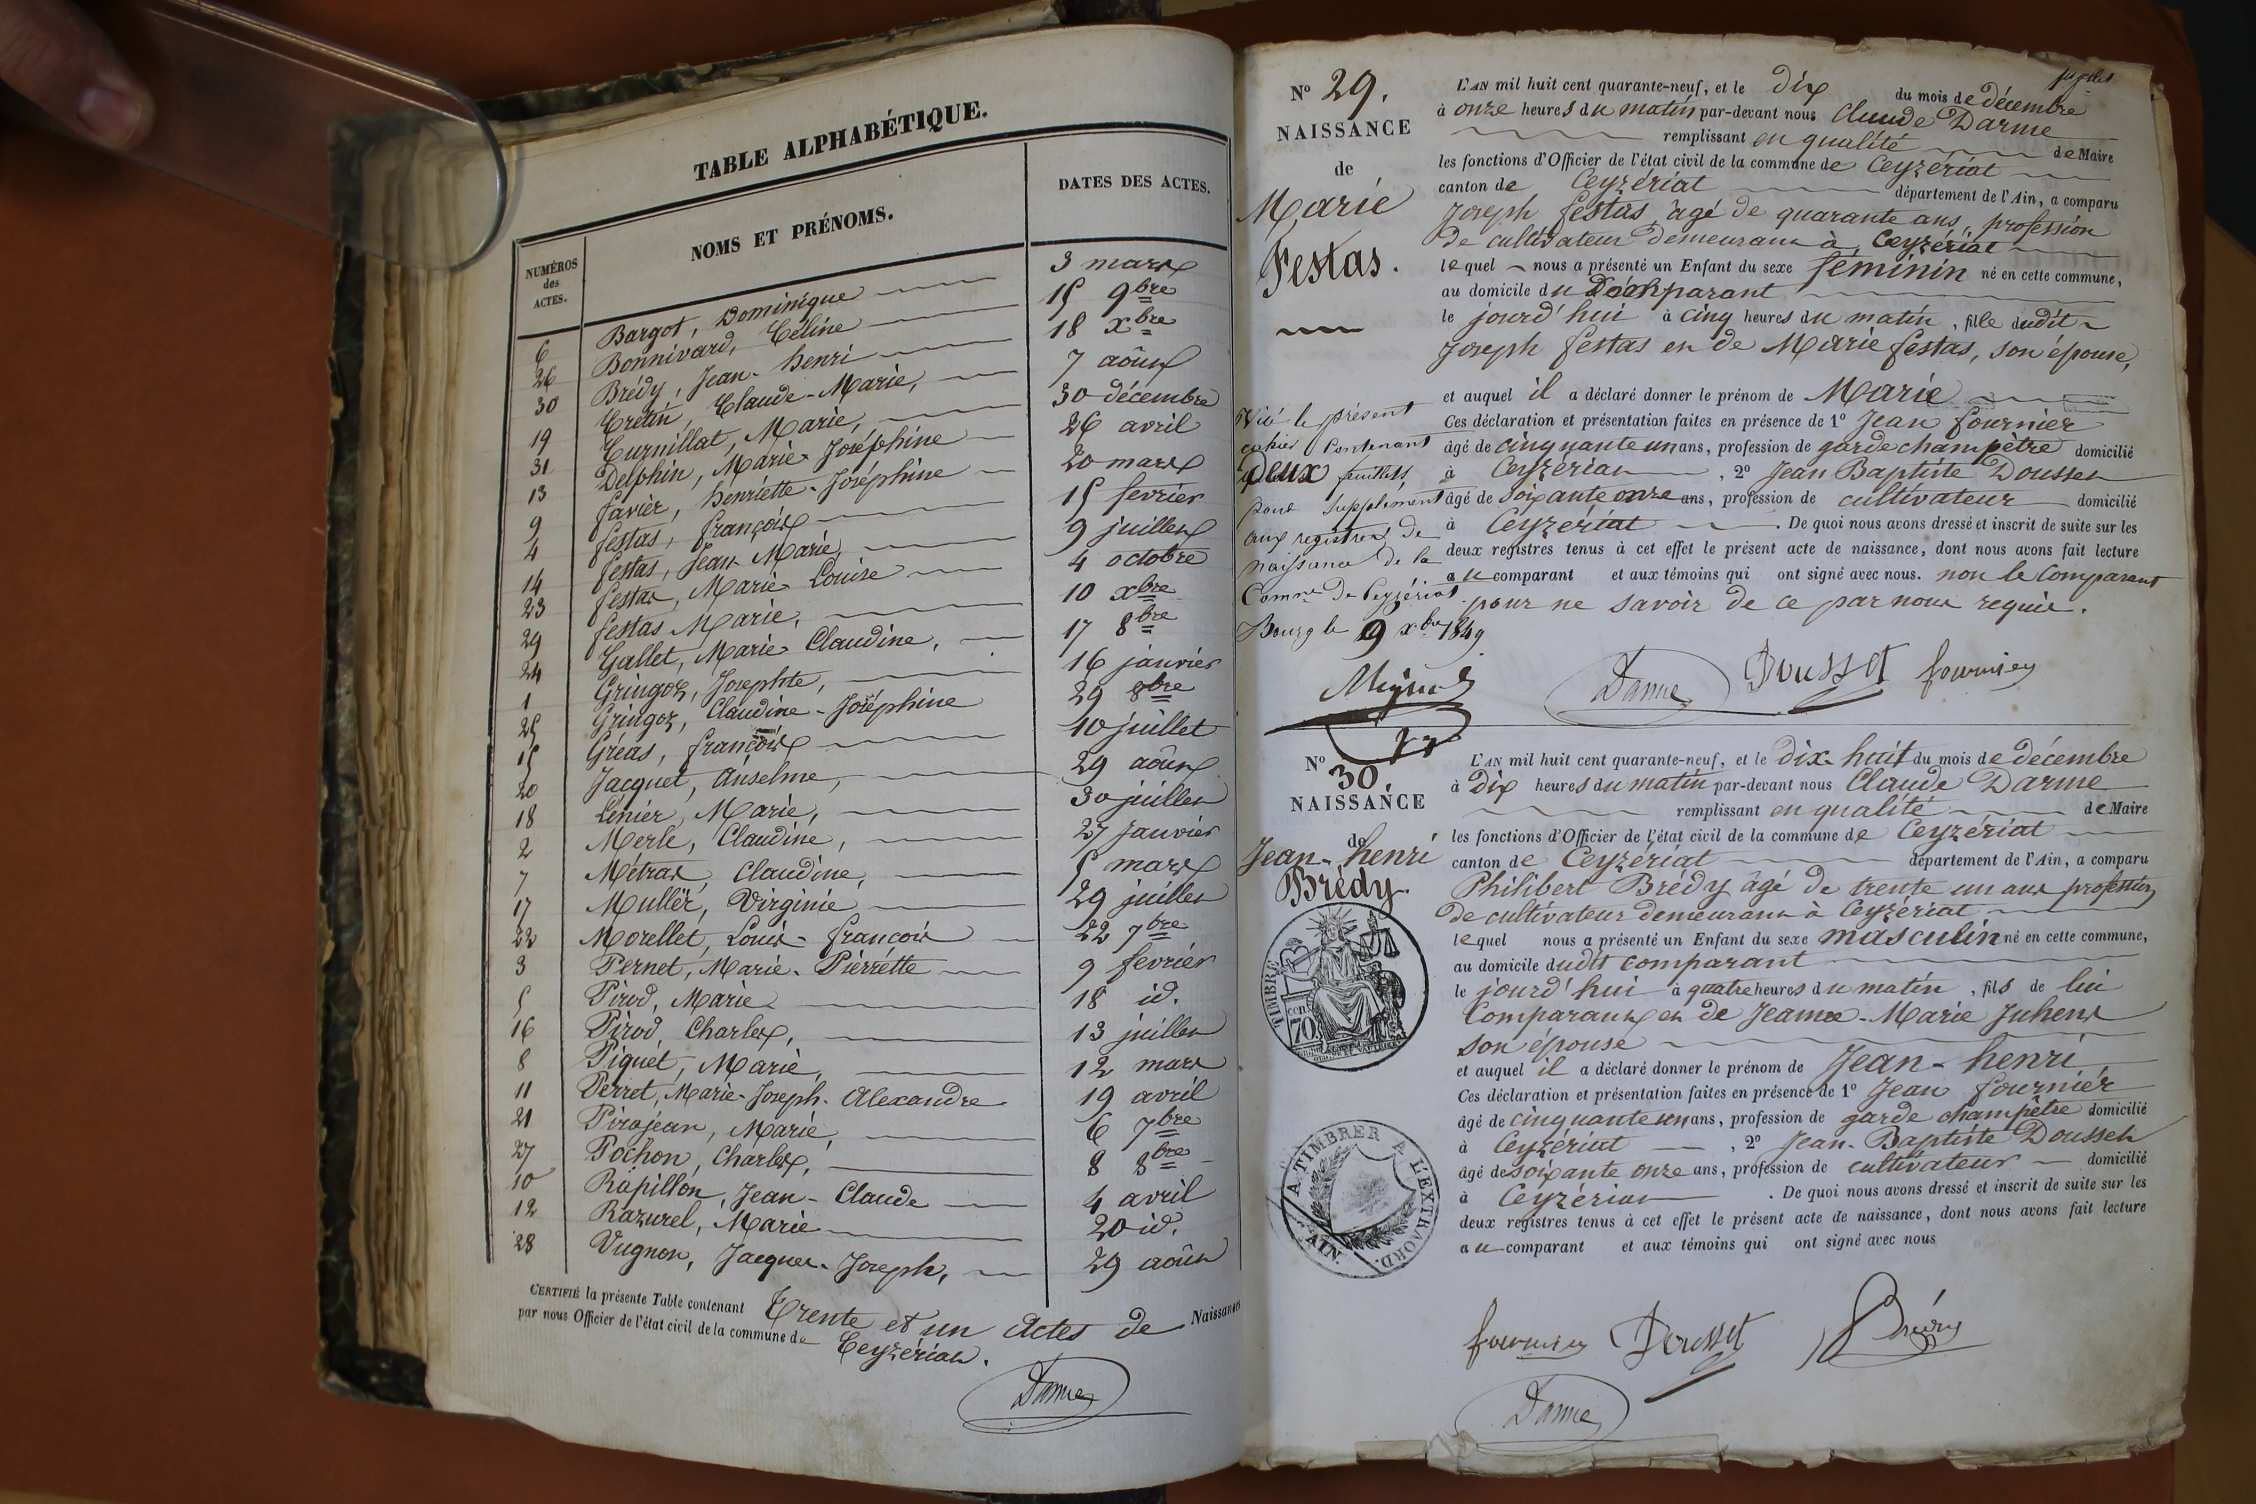 TABLE ALPHABÉTIQUE.
NUMÉROS des ACTES.
NOMS ET PRÉNOMS.
DATES DES ACTES.
6 Bargot, Dominique 3 mars
26 Bonnivard, Céline 15 9bre
30 Brédy, Jean-henri 18 xbre
19 Cretin, Claude-Marie, 7 août
31 Curnillat, Marie, 30 décembre
13 Delphin, Marie-Joséphine 26 avril
9 favier, henriette-Joséphine 20 mars
4 festas, françois 15 fevrier
14 festas, Jean-Marie, 9 juillet
23 festas, Marie Louise 4 octobre
29 festas Marie, 10 xbre
24 Gallet, Marie Claudine, 17 8bre
1 Gringoz, Josephte, 16 janvier
25 Gringoz, Claudine-Joséphine 29 8bre
15 Gréas, françois 10 juillet
20 Jacquet, anselme, 29 août
18 Lénier, Marie, 30 juillet
2 Merle, Claudine, 27 janvier
7 Métras, Claudine, 5 mars
17 Mullër, Virginie 29 juillet
22 Morellet, Louis-françois 22 7bre
3 Pernet, Marie-Pierrette 9 fevrier
5 Pirod, Marie 18 id.
16 Pirod, Charles, 13 juillet
8 Piquet, Marie, 12 mars
11 Perret, Marie-Joseph-Alexandre 19 avril
21 Pirojean, Marie, 6 7bre
27 Pochon, Charles, 8 8bre
10 Rapillon, Jean-Claude 4 avril
12 Razurel, Marie 20 id.
28 Vugnon, Jacques-Joseph, 29 août
CERTIFIÉ la présente Table contenant Trente et un Actes de Naissances
par nous Officier de l'état civil de la commune de Ceyzériat.
Darme
No 29.
NAISSANCE
de
Marie
Festas.
L'AN mil huit cent quarante-neuf, et le dix du mois de décembre
à onze heures du matin par-devant nous Claude Darme
remplissant en qualité de Maire
les fonctions d'Officier de l'état civil de la commune de Ceyzériat
canton de Ceyzériat département de l'Ain, a comparu
Joseph festas, âgé de quarante ans, profession
de cultivateur demeurant à Ceyzériat
lequel nous a présenté un Enfant du sexe féminin né en cette commune,
au domicile du comparant
le jourd'hui à cinq heures du matin, fille dudit
Joseph festas et de Marie festas, son épouse,
et auquel il a déclaré donner le prénom de Marie
Ces déclaration et présentation faites en présence de 1o Jean fournier
âgé de cinquante un ans, profession de garde champêtre domicilié
à Ceyzériat, 2o Jean Baptiste Dousset
âgé de soixante onze ans, profession de cultivateur domicilié
à Ceyzériat. De quoi nous avons dressé et inscrit de suite sur les
deux registres tenus à cet effet le présent acte de naissance, dont nous avons fait lecture
au comparant et aux témoins qui ont signé avec nous. non le comparant
pour ne savoir de ce par nous requis.
Darme Dousset fournier
Visé le présent
cahier contenant
deux feuillets
pour supplement
aux registres de
naissance de la
Comne de Ceyzériat.
Bourg le 9 xbre 1849
No 30.
NAISSANCE
de
Jean-henri
Brédy.
TIMBRE
70
L'AN mil huit cent quarante-neuf, et le dix-huit du mois de décembre
à Dix heures du matin par-devant nous Claude Darme
remplissant en qualité de Maire
les fonctions d'Officier de l'état civil de la commune de Ceyzériat
canton de Ceyzériat département de l'Ain, a comparu
Philibert Brédy âgé de trente un ans profession
de cultivateur demeurant à Ceyzériat
lequel nous a présenté un Enfant du sexe masculin né en cette commune,
au domicile dudit comparant
le jourd'hui à quatre heures du matin, fils de lui
Comparant et de Jeanne-Marie Juhent
son épouse
et auquel il a déclaré donner le prénom de Jean-henri
Ces déclaration et présentation faites en présence de 1o Jean fournier
âgé de cinquante un ans, profession de garde champêtre domicilié
à Ceyzériat, 2o Jean-Baptiste Dousset
âgé de soixante onze ans, profession de cultivateur domicilié
à Ceyzériat. De quoi nous avons dressé et inscrit de suite sur les
deux registres tenus à cet effet le présent acte de naissance, dont nous avons fait lecture
au comparant et aux témoins qui ont signé avec nous
A TIMBRER A L'EXTRAORD.
AIN
fournier Dousset Brédy
Darme